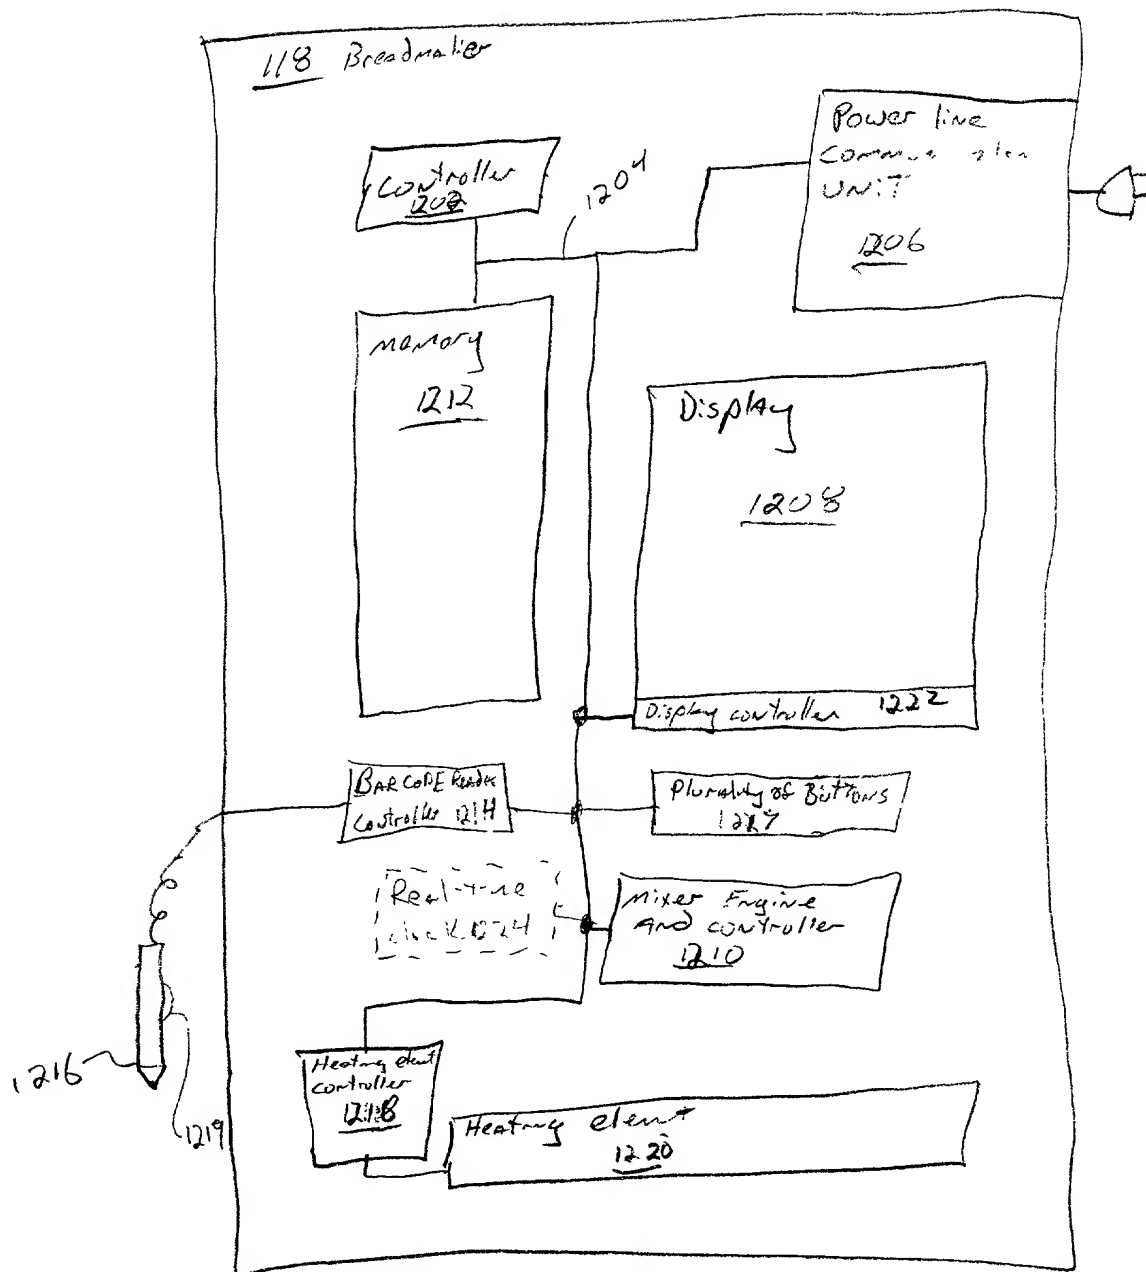 118 Breadmaker
Controller
1202
1204
Power line
UNIT
1206
Memory
1212
Display
1208
Display controller 1222
BAR CODE Reader
Controller 1214
Plurality of Buttons
Real-time
clock 1224
Mixer Engine
And controller
1210
1216
1219
Heating elent
controller
1218
Heating elent
1220